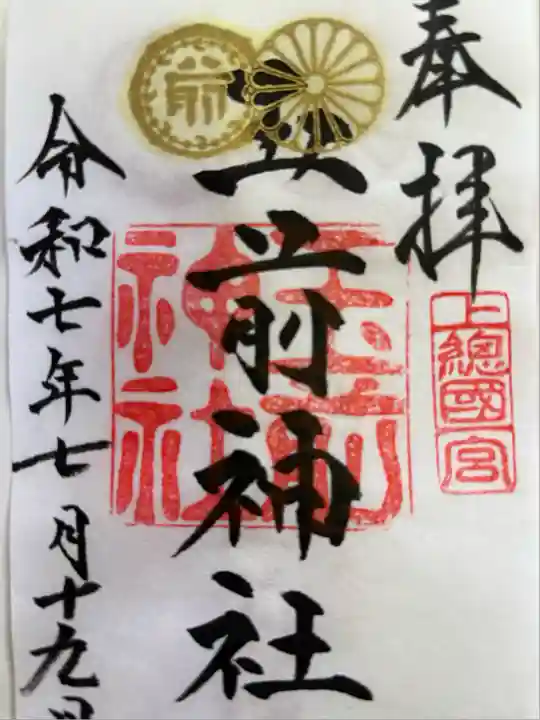 奉拝
上總國一宮
前
玉前神社
玉前神社
令和七年七月十九日